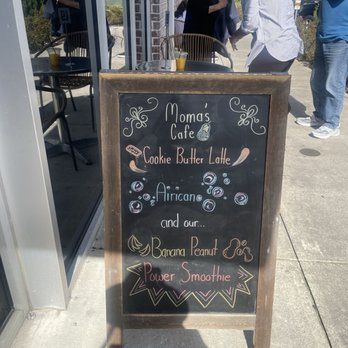 Moma's
Cafe
Cookie Butter Latte
Airicano
and our...
Banana Peanut
Power Smoothie